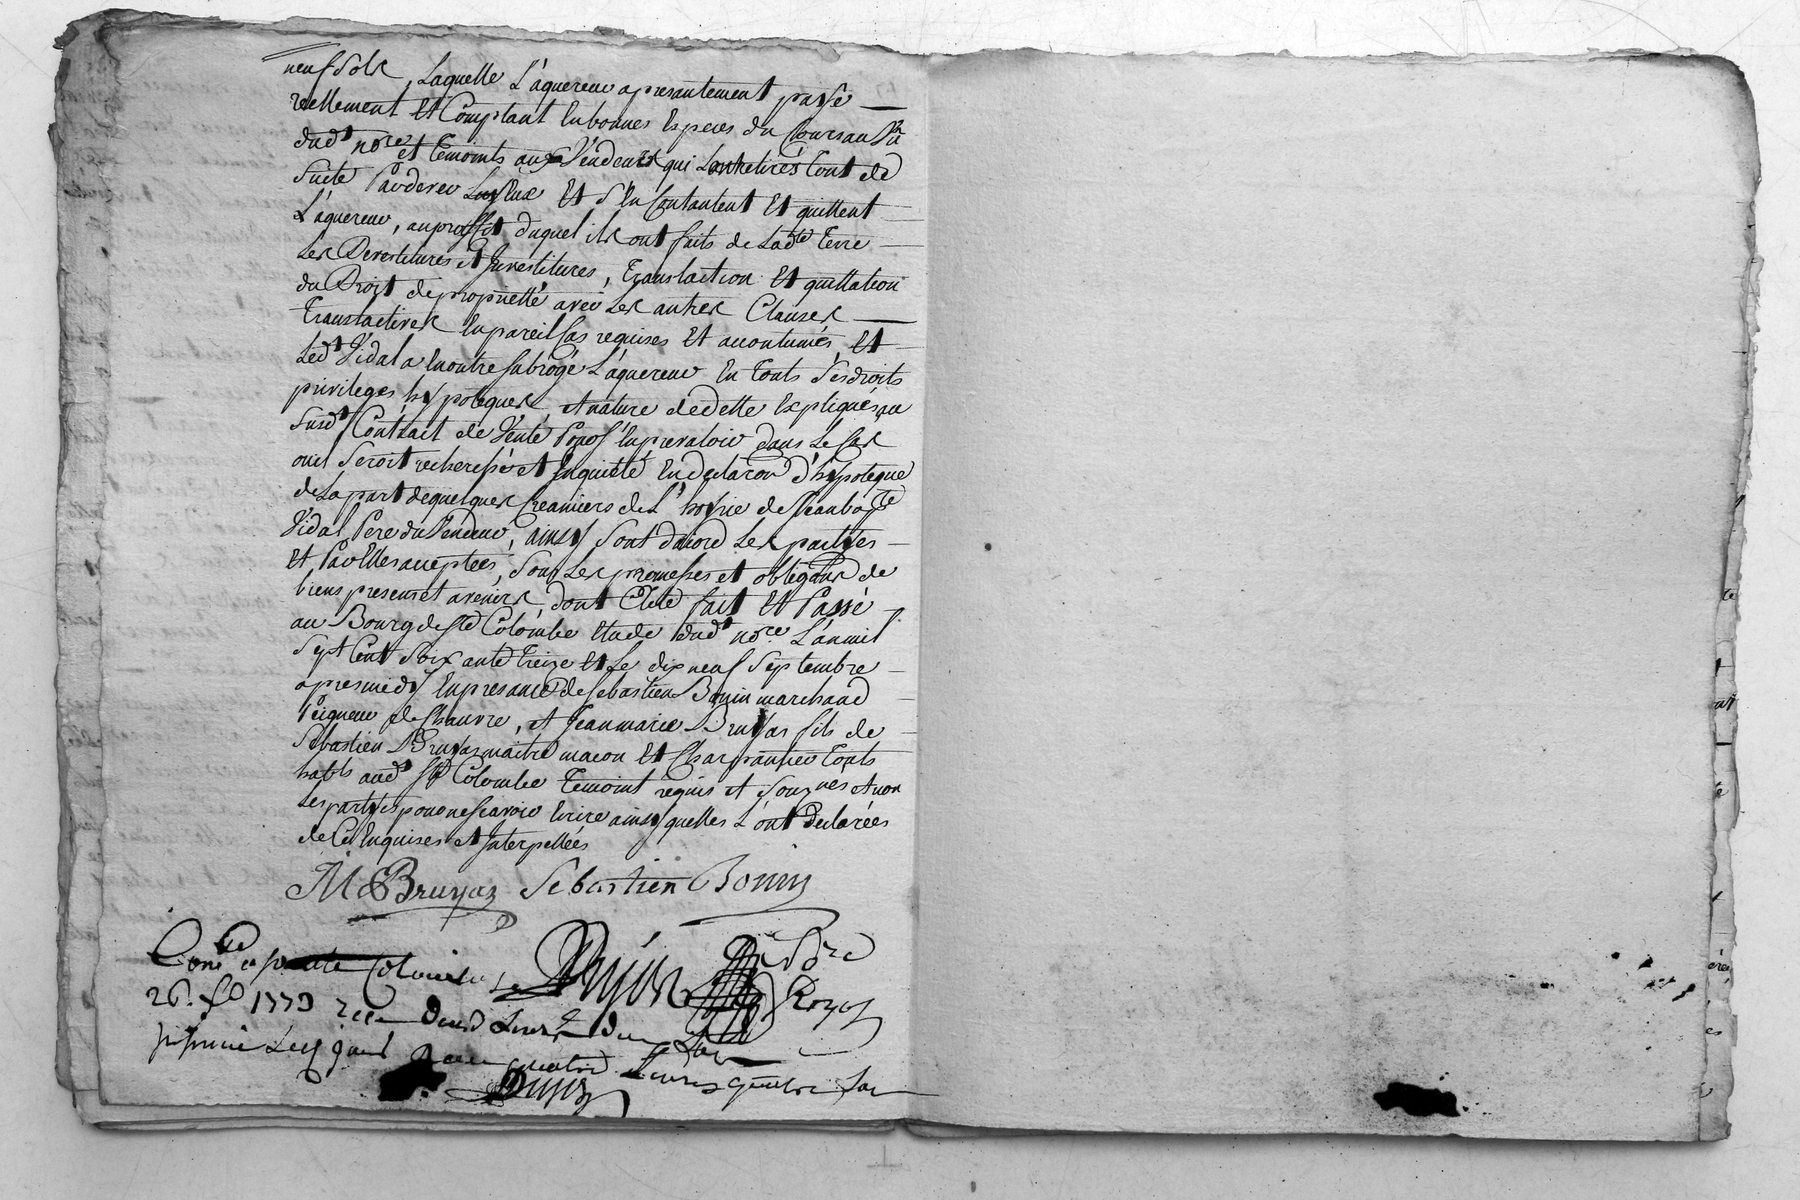 neuf sols, Laquelle L'aquereur a presantement payé
reellement Et Comptant En bonnes Especes du Cours au Vu
dud.t no.re et Temoints aux Vendeurs qui Lont retirés Tout de
Suite Pardever Eux Et S'En Contantent Et quittent
L'aquereur, au proffit duquel ils ont faits de Lad.te Terre
Les Devestitures et Investitures, Translaction Et quittation
du Droit de proprietté avec Les autres Clauses
Translactives En pareil Cas requises Et acoutumés, Et
Led.t Vidal a En outre subrogé L'aquereur En Touts Ses droits
privileges hypoteques, et nature de dette Expliqués, au
Susd.t Contrait de Vente Pour S'En prevaloir dans Le Cas
ou il Seroit recherché et Inquiété En declaraon d'hypoteque
de La part de quelques Creanciers de L'hoirie de Jean bap.te
Vidal Pere du Vendeur, ainsy Sont dacord Les partyes
Et Par Elles acceptées, Sous Les promesses et obligaons de
biens presens et avenirs, dont acte fait Et Passé
au Bourg de S.te Colombe Etude dud.t no.re L'an mil
Sept Cent Soixante Treize Et Le dix neuf Septembre
apres midy En presance de Sebastien Bonin marchand
Peigneur de Chanvre, et Jean marie Bruyas fils de
Sebastien Bruyas maitre macon Et Charpantier Touts
habts aud.t S.te Colombe Temoint requis et Sousignés et non
Les partyes pour ne Scavoir Ecrire ainsy quelles L'ont Declarées
de Ce Enquises et Interpellées
JM Bruyas Sebastien Bonin
Con.lé a Ste Colombe Le
26. 1773 reçu
quatre Livres quatre Sols